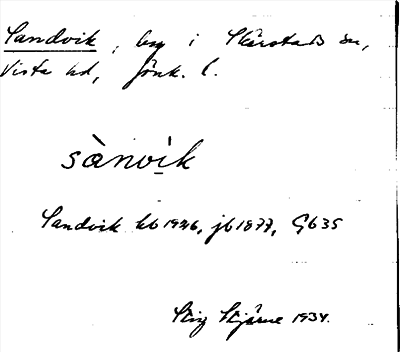 Sandvik, by i Skärstads sn,
Vista hd, Jönk. l.
sànvi̱k
Sandvik kb 1946, jb 1877, Gb 35
Stig Stjärne 1934.